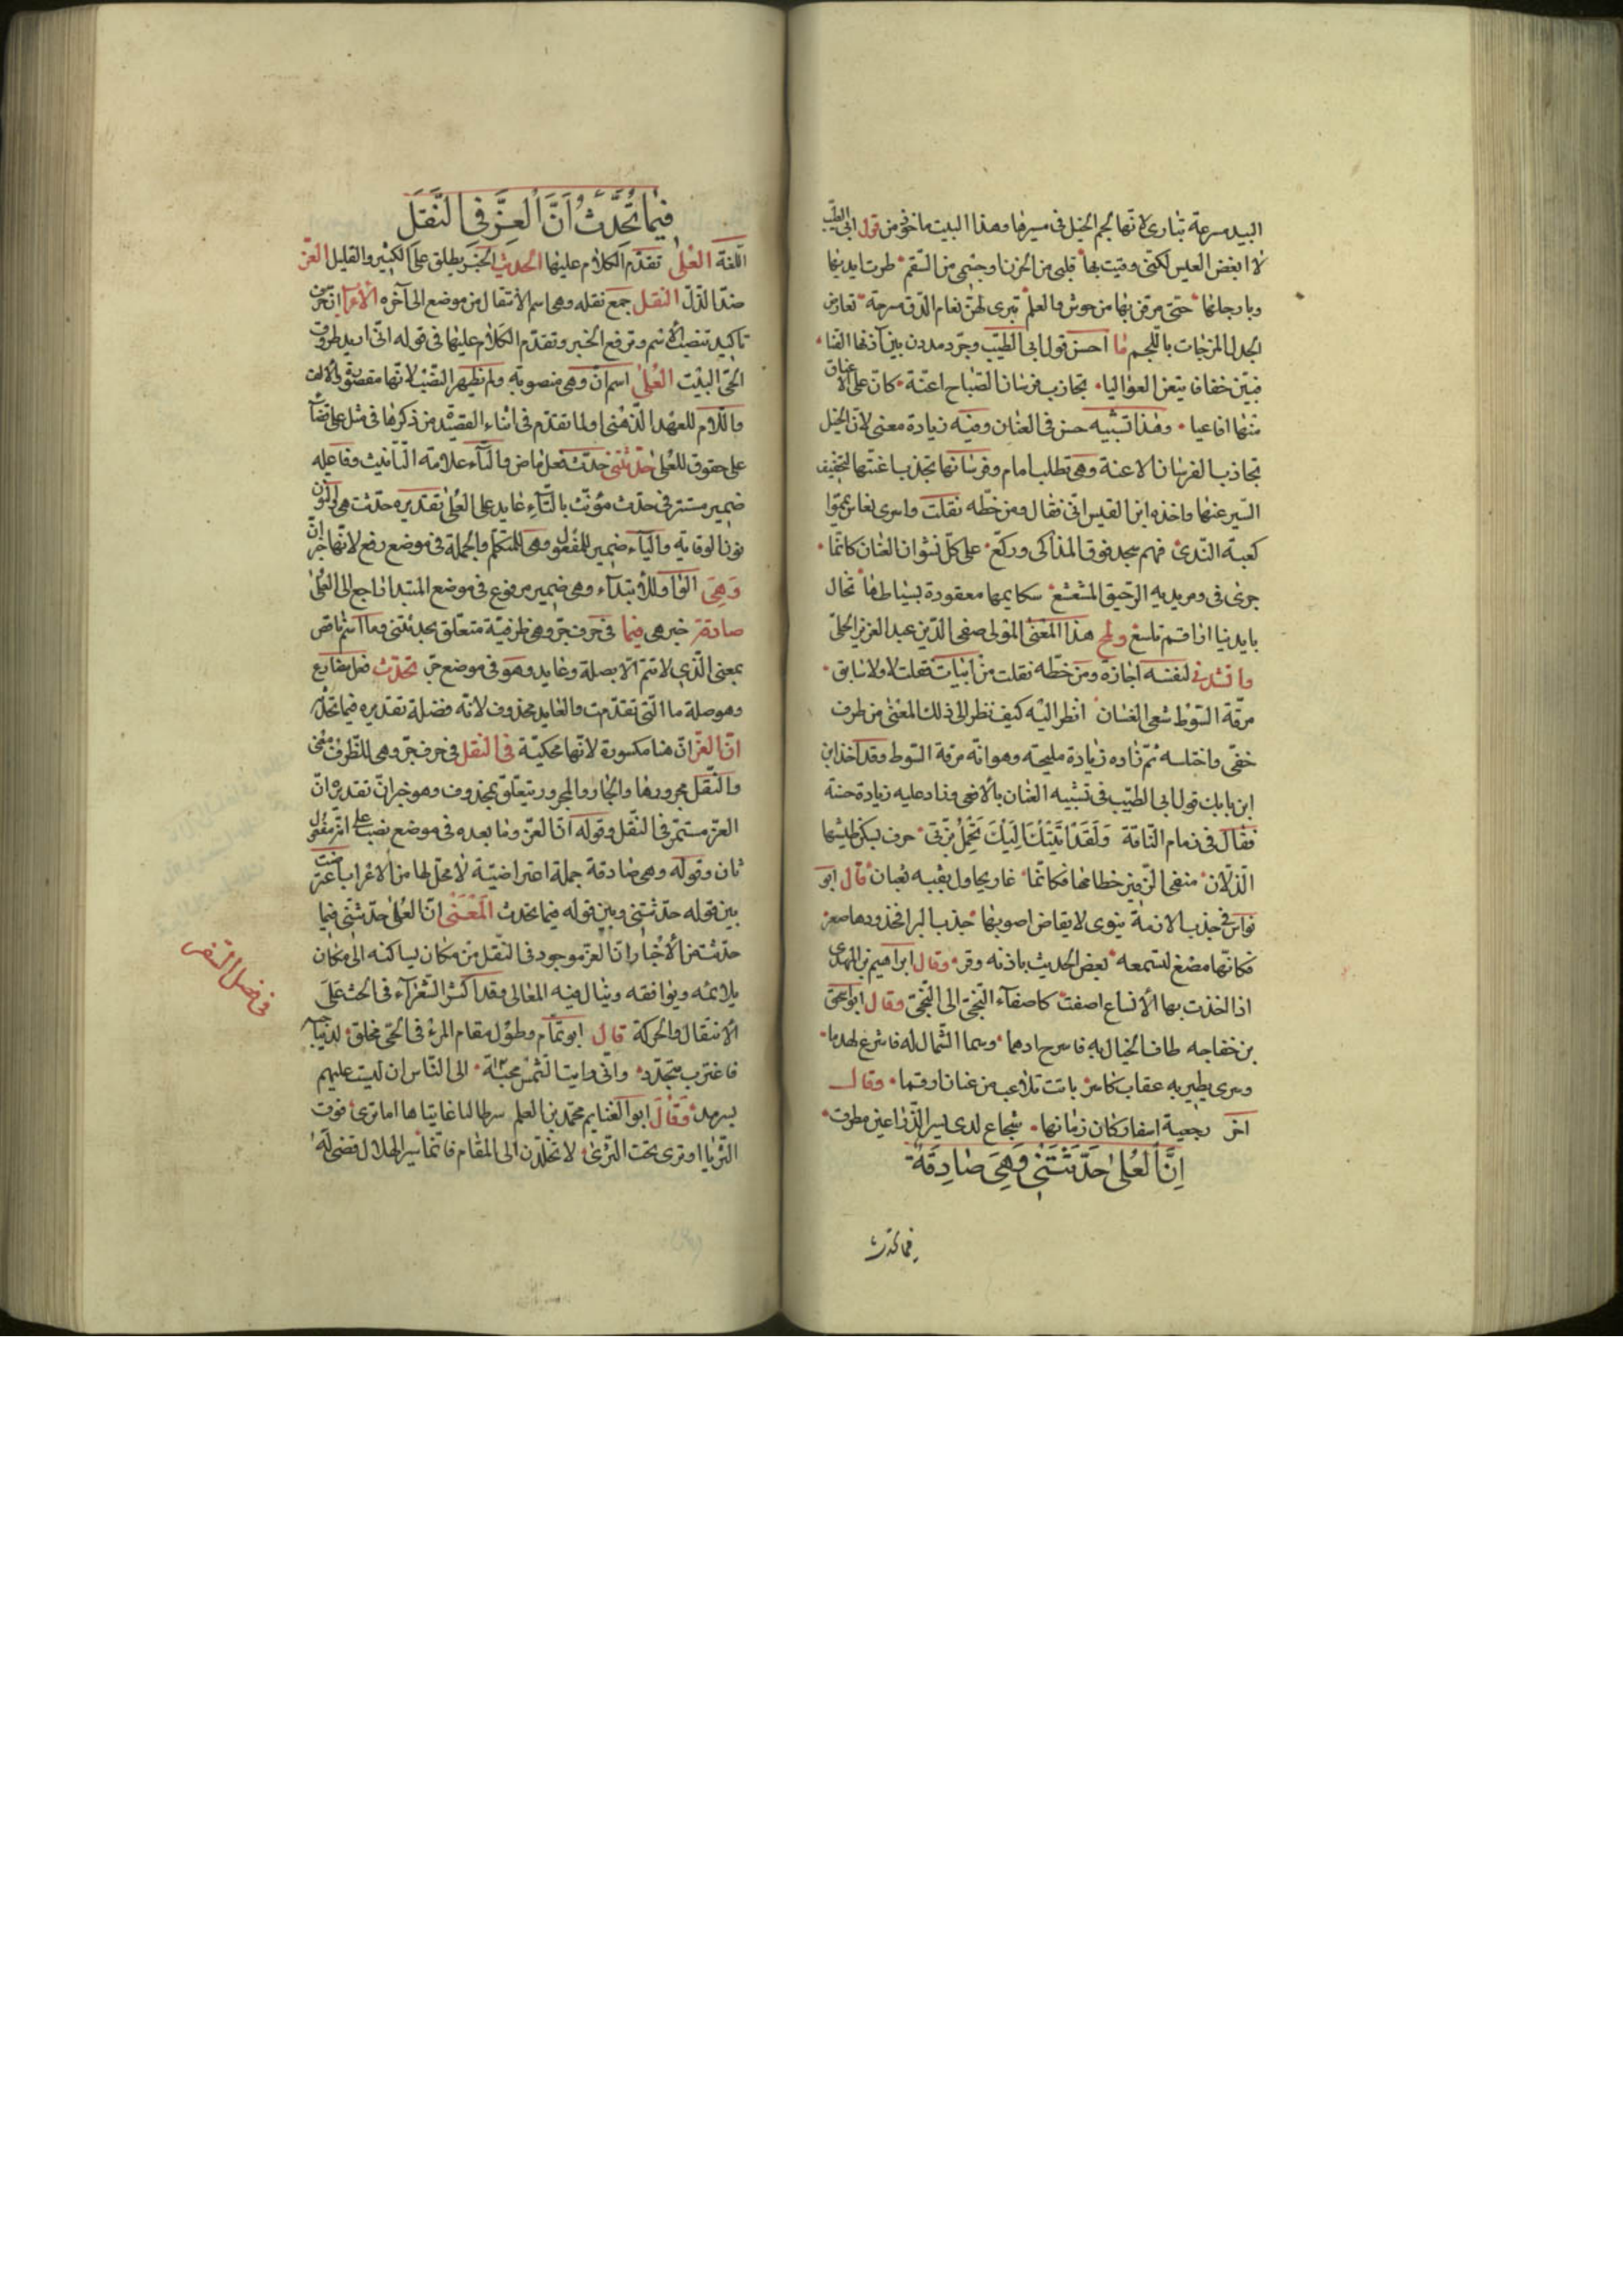 البيد مسرعة تبارى لانها لجم الخيل في سيرها وهذا البيت ماخوذ من قول ابى الطيب
لا ابغض العيس لكنى وقيت بها قلبى من الحزن او جسمى من السقم طردت ايديها
وبارجلها حتى مرقن بها من جوش والعلم تبرى لهن نعام الدو مسرجة تعارض
الجدل المرخات باللجم ما احسن قول ابى الطيب وجرد مددن بين آذانها القنا
فبتن خفافا يتبعن العواليا تجاذب فرسان الصباح اعنة كان على الاعناق
منها افاعيا وهذا تشبيه حسن في العنان وفيه زيادة معنى لان الخيل
تجاذب الفرسان الاعنة وهى تطلب امام وفرسانها تجذب اعنتها لتخفيف
السير عنها واخذه ابن القيسرانى فقال ومن خطه نقلت واسرى نعاس يمموا
كعبة الندى فهم سجد فوق المذاكى وركع على كل نشوان العنان كانما
جرى في وريديه الرحيق المشعشع سكايمها معقودة بسياطها تخال
بايدينا اراقم تلسع ولمح هذا المعنى المولى صفى الدين عبد العزيز الحلى
وانشدنى لنفسه اجازة ومن خطه نقلت من ابيات
مرقة السوط شعى العنان انظر اليه كيف نظر الى ذلك المعنى من طرف
خفى واختلسه ثم زاده زيادة مليحة وهو انه مرقة السوط وقد اخذ ابن
ابن بابك قول ابى الطيب في تشبيه العنان بالافعى وزاد عليه زيادة حسنة
فقال في زمام الناقة ولقد اتيتك اليك تحمل بزتى حرف يسكن طيشها
الذلان منفى الزفير خطامها فكانما غار يحاول نقبه ثعبان قال ابو
نواس في جذب الازمة
فكانها مصغ لتسمعه بعض الحديث باذنه وقر وقال ابراهيم بن المهدى
اذا اتخذت بها الانساع اصغت كاصغاء النجى الى النجى وقال ابو اسحق
بن خفاجه طاف الخيال به فاسرج ادهما وسما الشمال له فاشرع لهذما
وسرى يطير به عقاب كاسر باتت تلاعب من عنان ارقما وقال
اخر
اِنَّ العُلىٰ حَدَّثَتْنِى وَهِىَ صَادِقَةٌ
فيما تحدث
فِيمَا تُحَدِّثُ اَنَّ الْعِزَّ فِى النَّقَلِ
اللغة العلى تقدم الكلام عليها الحديث الخبر يطلق على الكثير والقليل العز
ضد الذل النقل جمع نقله وهى اسم الانتقال من موضع الى آخره الاعراب ان حرف
تاكيد تنصب الاسم وترفع الخبر وتقدم الكلام عليها في قوله انى اريد طروق
الحى البيت العلى اسم ان وهى منصوبة ولم يظهر النصب لانها مقصورة والالف
واللام للعهد الذهنى او لما تقدم في اثناء القصيدة من ذكرها في مثل على قضاء
على حقوق للعلى حدثتنى حدثت فعل ماض والتاء علامة التانيث وفاعله
ضمير مستتر في حدث مؤنث بالتاء عايد على العلى تقديره حدثت هى والنون
نون الوقاية والياء ضمير المفعول وهى للمتكلم والجملة في موضع رفع لانها خبر ان
وهى الواو للابتداء وهى ضمير مرفوع في موضع المبتدا راجع الى العلى
صادقة خبر هى فيما في حرف جر وهى ظرفية متعلق بحدثتنى وما اسم ناقص
بمعنى الذى لا تتم الا بصلة وعايد وهو في موضع جر تحدث فعل مضارع
وهو صلة ما التى تقدمت والعايد محذوف لانه فضلة تقديره فيما تحدثه
ان العز ان هنا مكسورة لانها محكية في النقل في حرف جر وهى للظرف
والنقل مجرورها والجار والمجرور يتعلق بمحذوف وهو خبر ان تقديره ان
العز مستمر في النقل وقوله ان العز وما بعده في موضع نصب على انه مفعول
ثان وقوله وهى صادقة جملة اعتراضية لا محل لها من الاعراب اعترضت
بين قوله حدثتنى وبين قوله فيما تحدث المعنى ان العلى حدثتنى فيما
حدثته من الاخبار ان العز موجود في النقل من مكان ليس اكنه الى مكان
يلائمه ويوافقه وينال فيه المعالى وقد اكثر الشعراء في الحث على
الانتقال والحركة قال ابو تمام وطول مقام المرء في الحى مخلق لديباجتيه
فاغترب تتجدد وانى رايت الشمس محبة الى الناس ان ليست عليهم
بسرمد وقال ابو الغنايم محمد بن المعلم سر طالبا غاياتها اما ترى فوق
الثريا او ترى تحت الثرى لا تخلدن الى المقام فانما سير الهلال قضى له
في فضل السفر